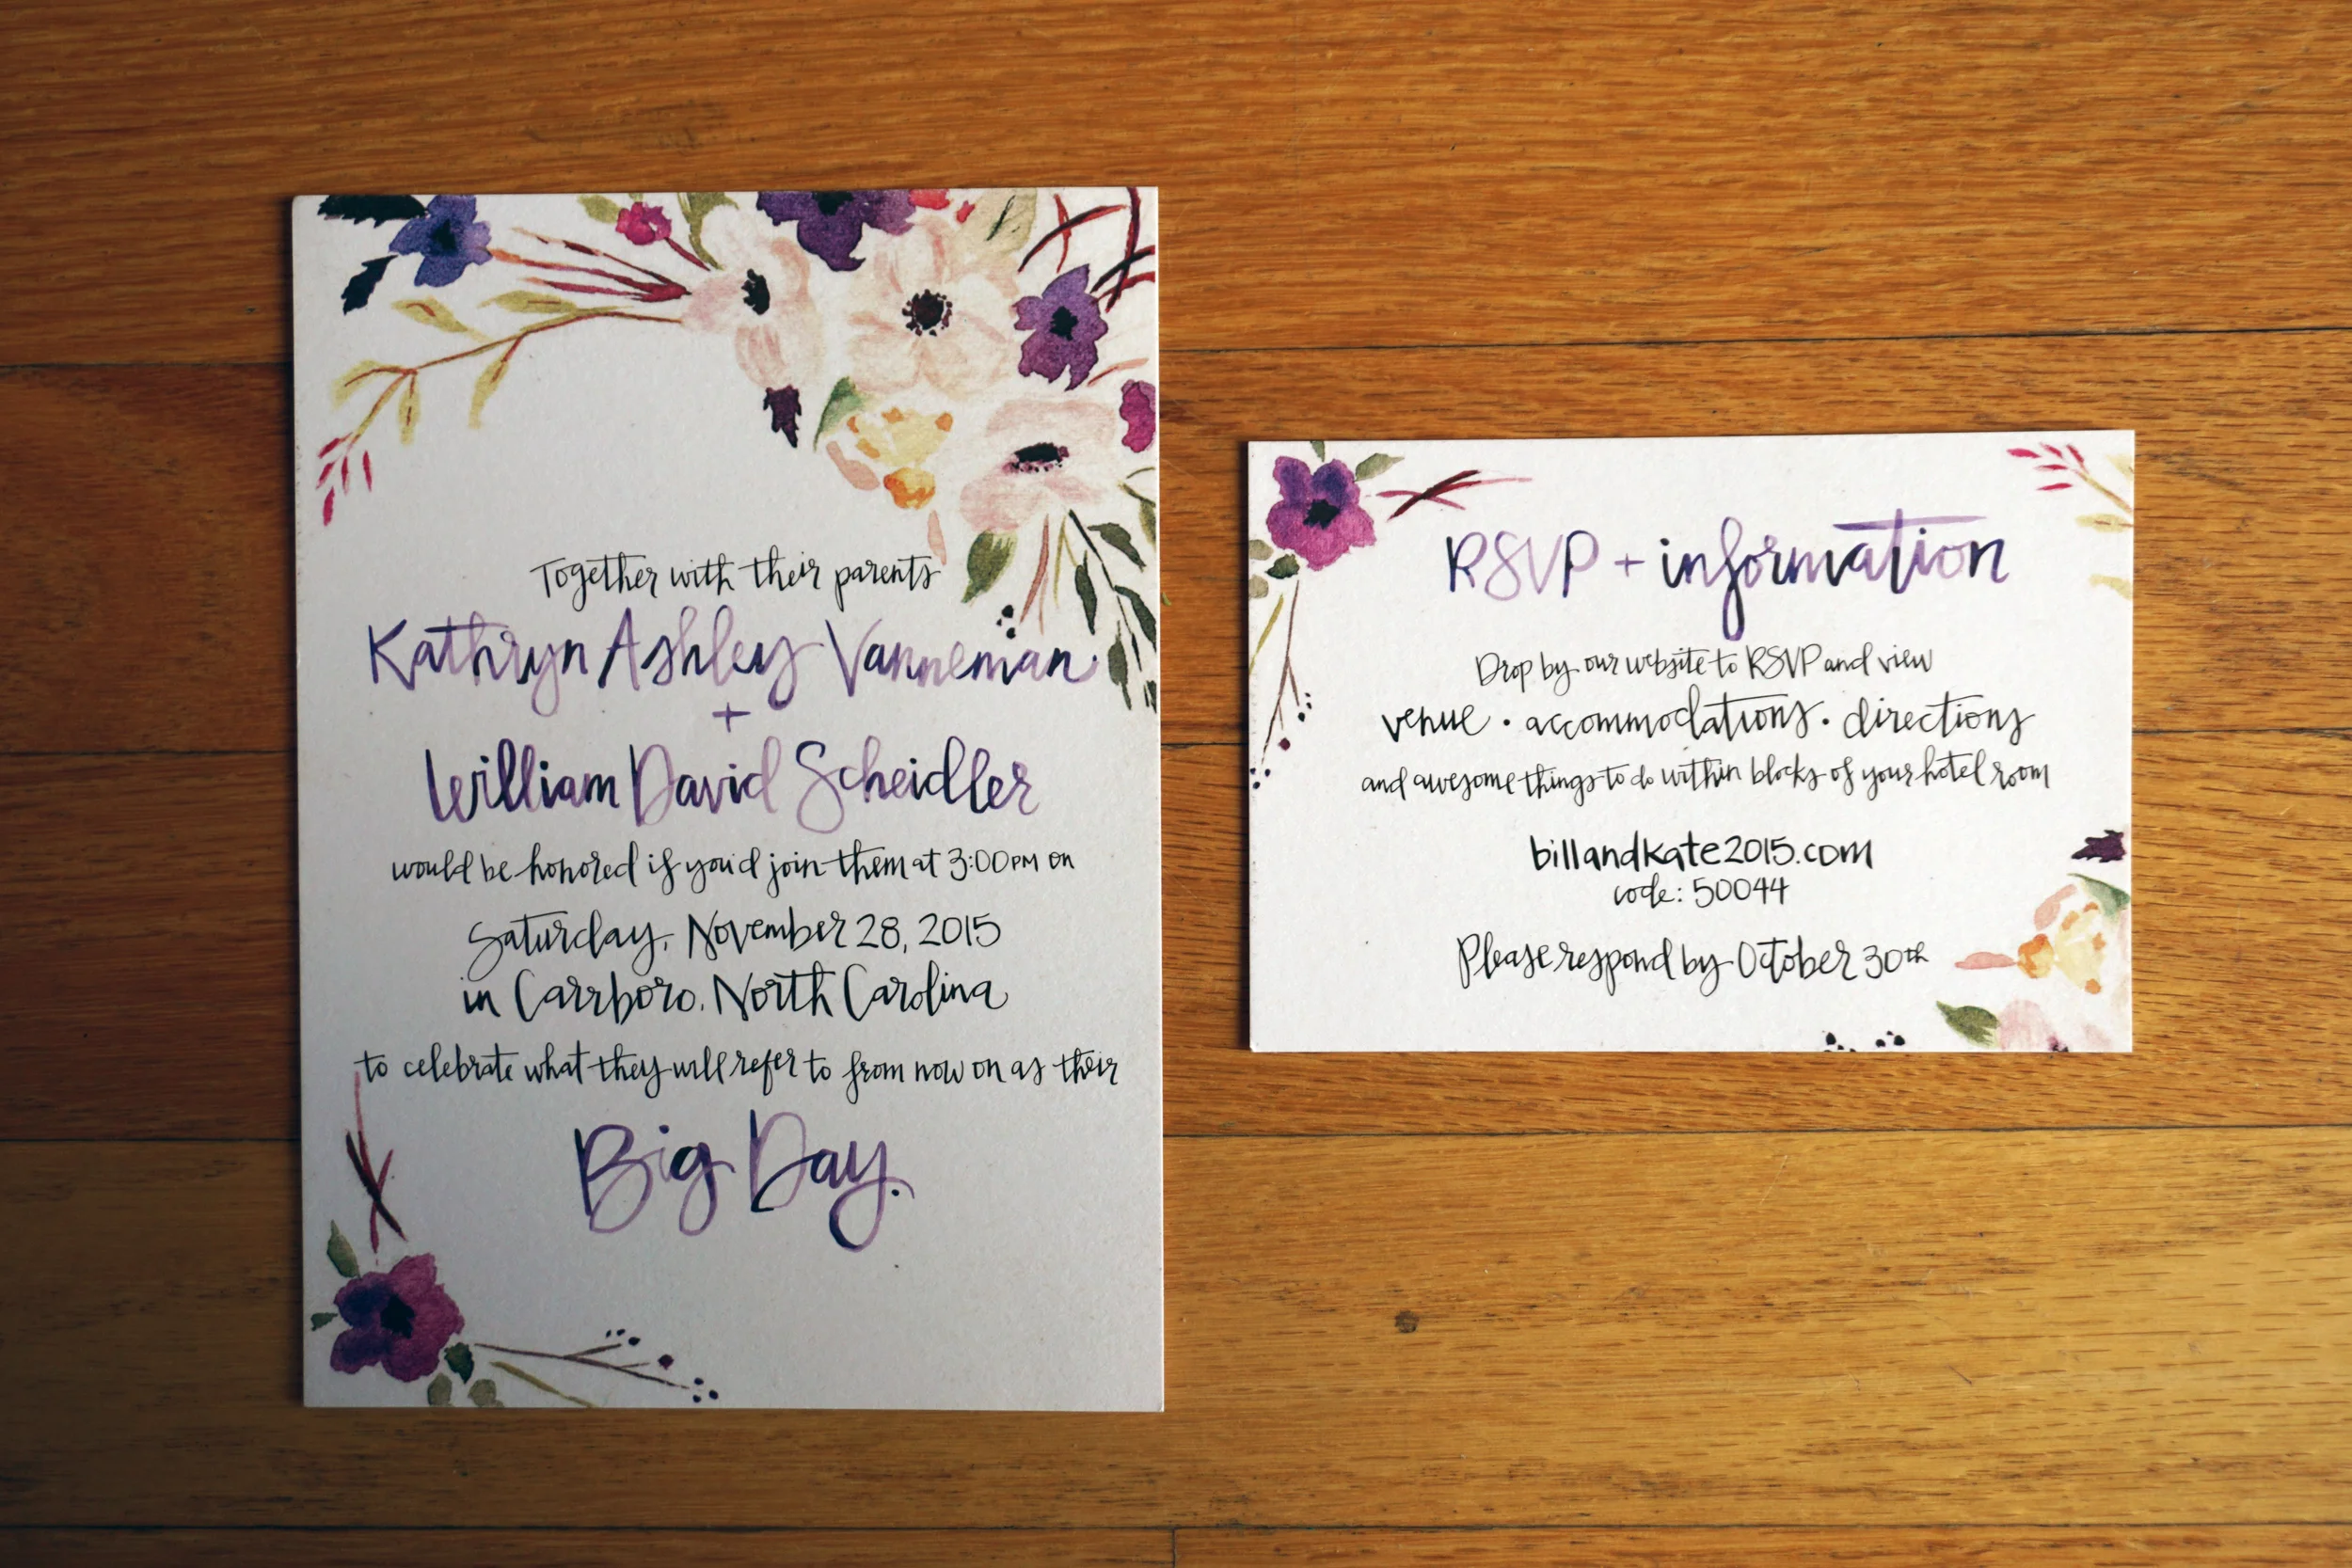 Together with their parents
Kathryn Ashley Vanneman
+
William David Scheidler
would be honored if you'd join them at 3:00PM on
Saturday, November 28, 2015
in Carrboro, North Carolina
to celebrate what they will refer to from now on as their
Big Day.
RSVP + information
Drop by our website to RSVP and view
venue · accommodations · directions
and awesome things to do within blocks of your hotel room
billandkate2015.com
code: 50044
Please respond by October 30th